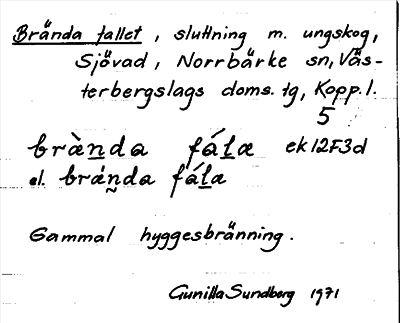 Brända fallet, sluttning m. ungskog,
Sjövad, Norrbärke sn, Väs-
terbergslags doms. tg, Kopp. l.
5
brànda fáḻæ ek12F3d
el. brańda fáḻæ
Gammal hyggesbränning.
Gunilla Sundberg 1971